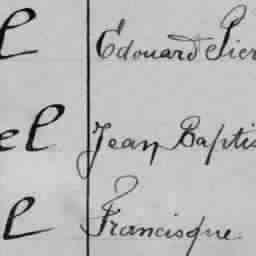 l Edouard Pier
el Jean Baptis
l Francisque